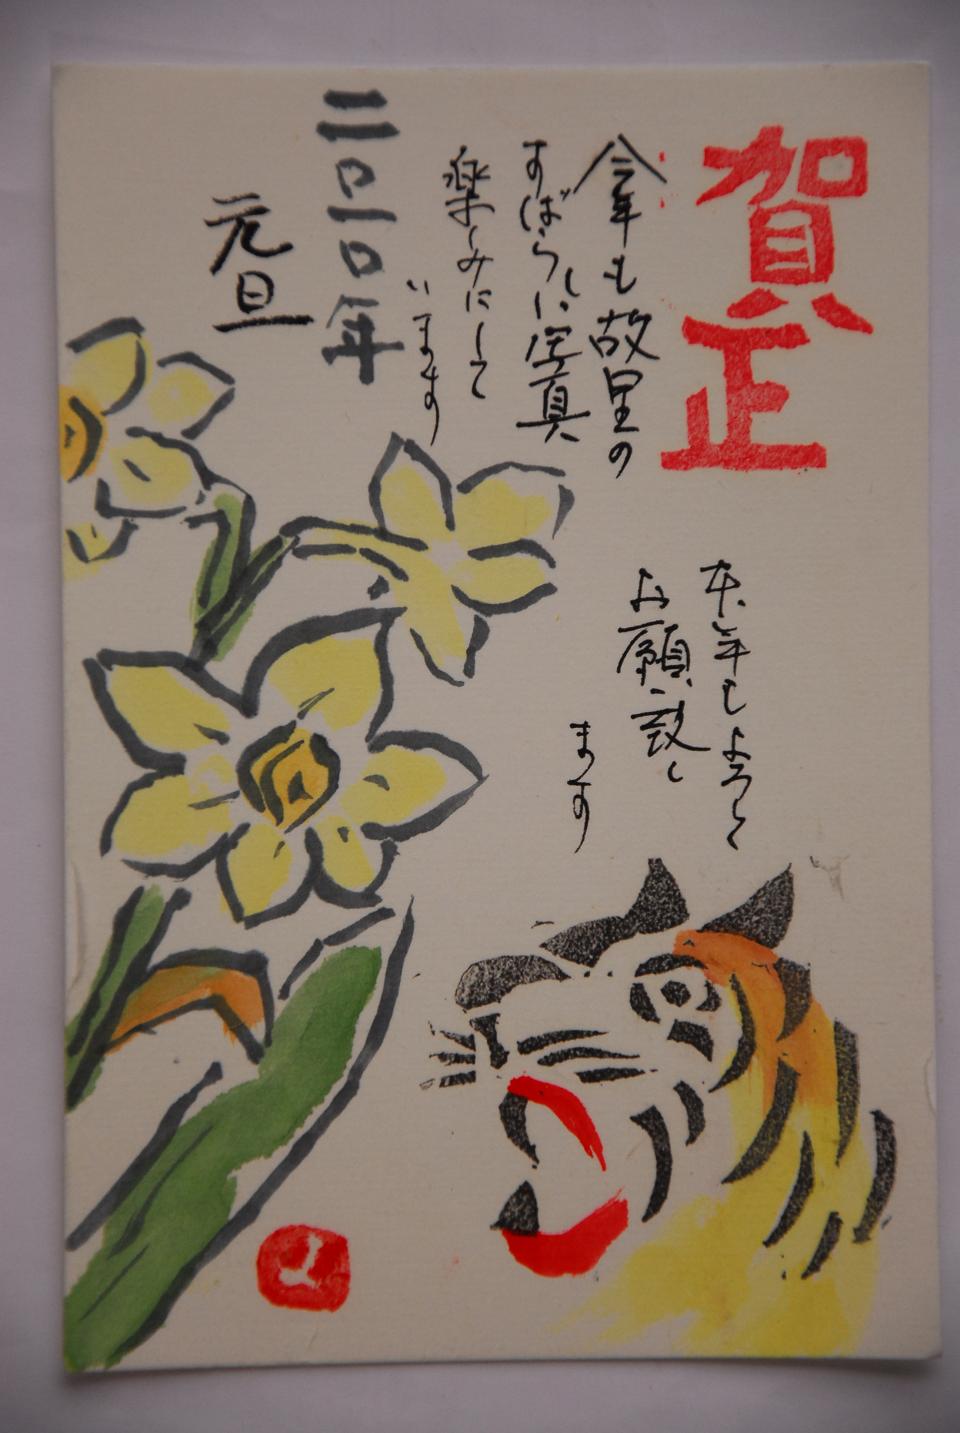 賀正
今年も故里の
すばらしい写真
楽しみにして
います
二〇一〇年
元旦
本年もよろしく
お願い致し
ます